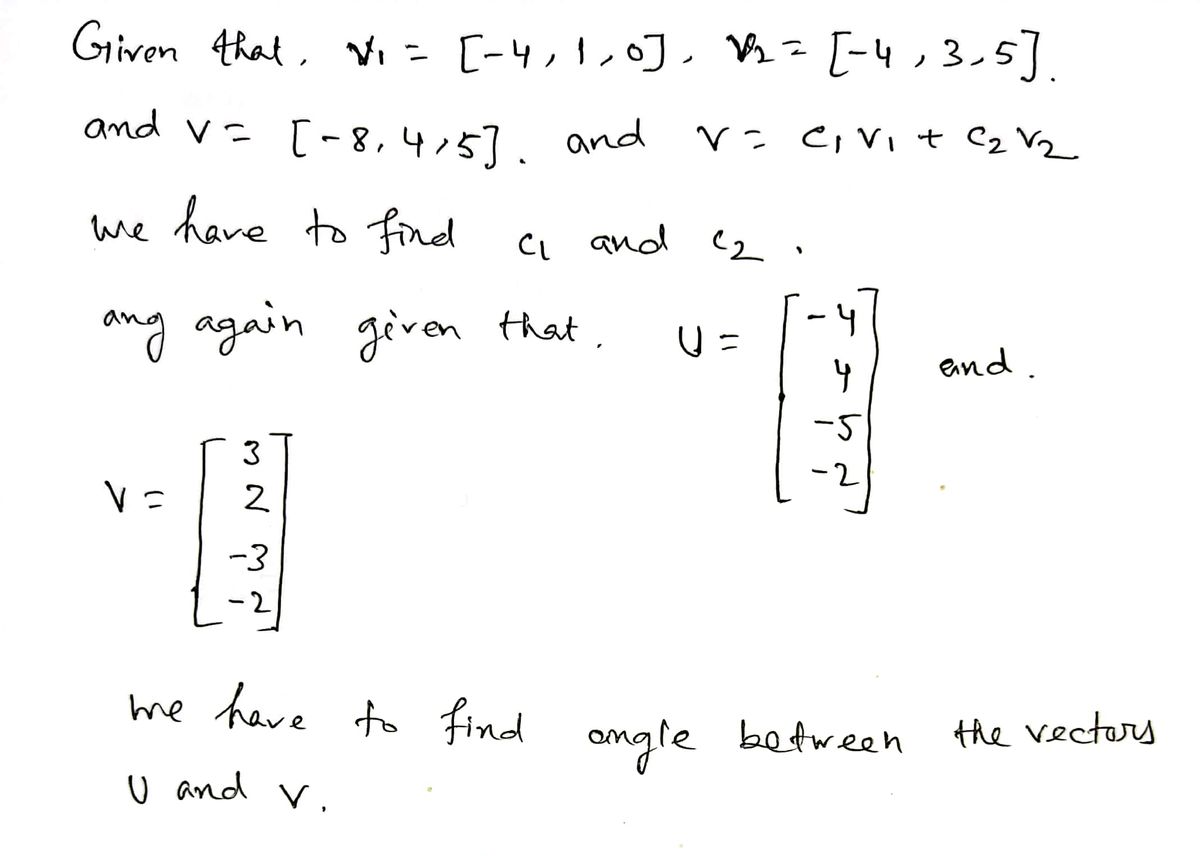 Given that, v1 = [-4, 1, 0], v2 = [-4, 3, 5].
and v = [-8, 4, 5]. and v = c1 v1 + c2 v2
we have to find c1 and c2.
ang again given that. U = [-4 4 -5 -2] and.
V = [3 2 -3 -2]
we have to find angle between the vectors
U and V.